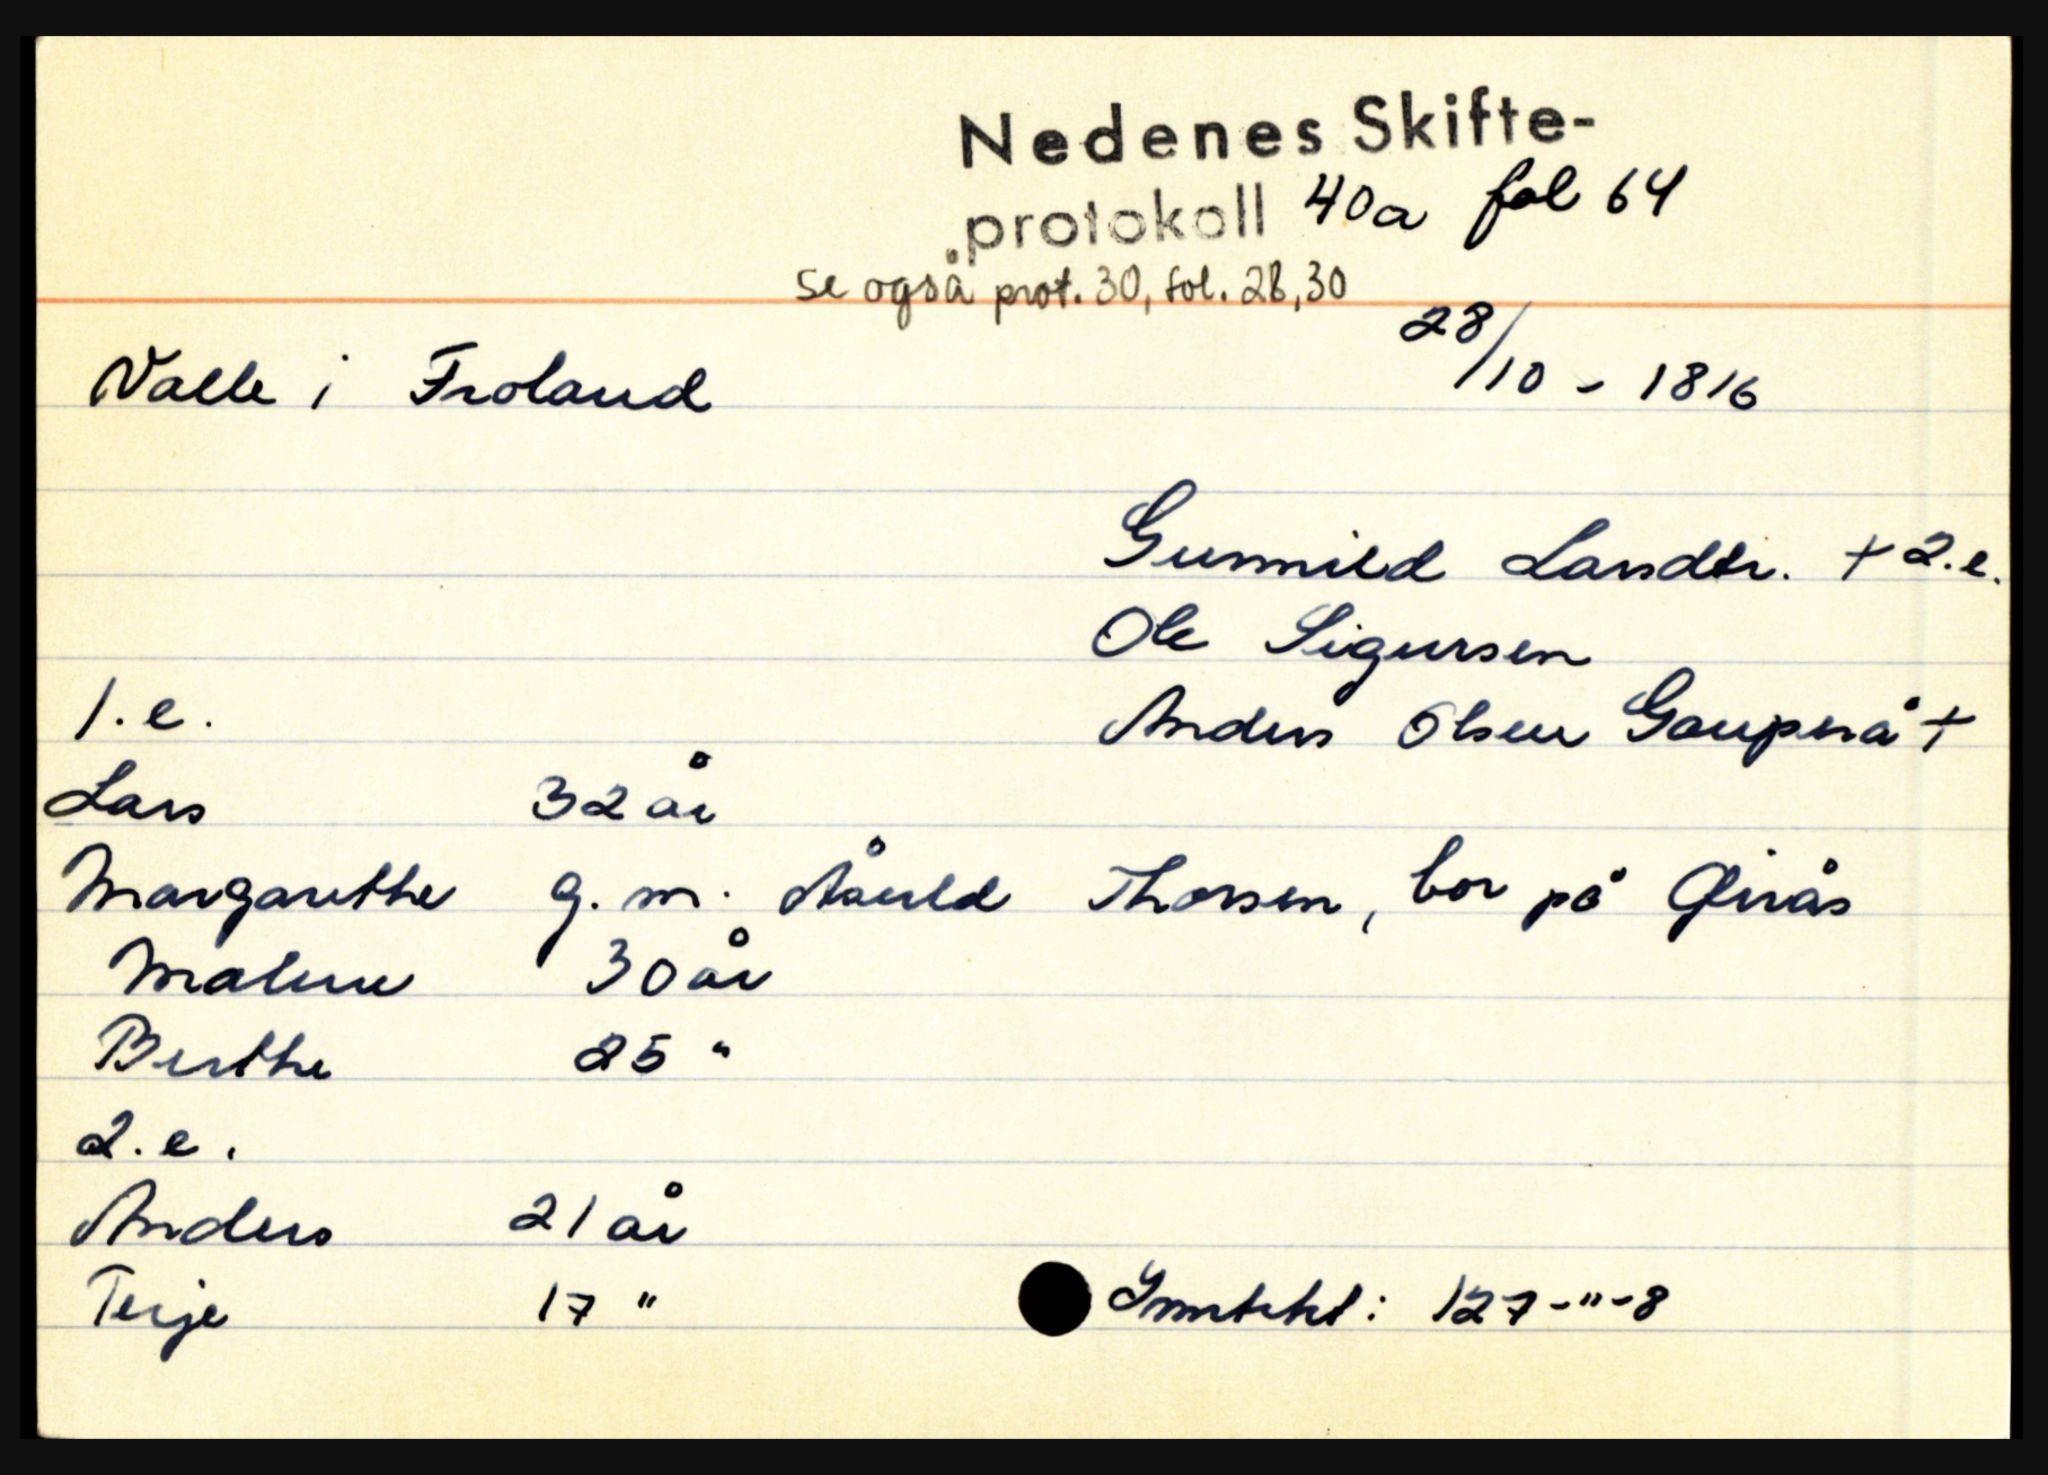 Nedenes Skifte-
protokoll 40a fol 64
se også prot. 30, fol. 28,30
28/10 - 1816
Valle i Froland
Gunnild Larsdtr. + 2.e.
Ole Sigursen
1.e.
Anders Olsen Gauperå +
Lars 32 år
Margarethe g.m. Thorsen, bor på
Malene 30 år
Berthe 25 "
2.e.
Anders 21 år
Terje 17 "
Inntekt: 127-"-8